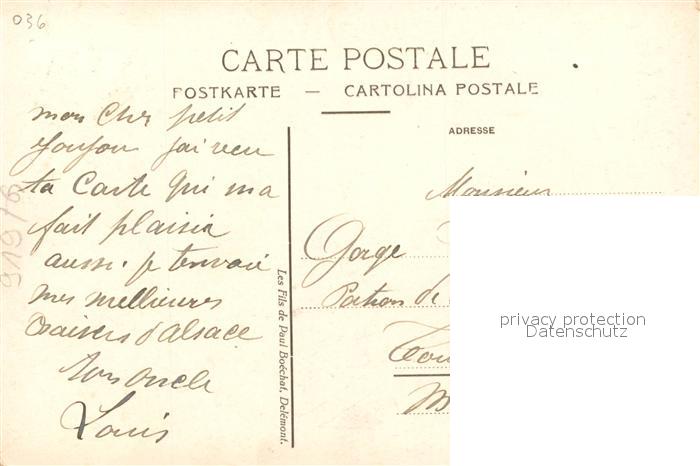 036
CARTE POSTALE
POSTKARTE — CARTOLINA POSTALE
ADRESSE
mon cher petit
j'ai recu
ta Carte qui ma
fait plaisir
aussi. je tenvoie
mes mellieures
Baisers d'alsace
ton oncle
Louis
Les Fils de Paul Boéchat, Delémont.
Monsieur
Gorge
Patron de
privacy protection
Datenschutz